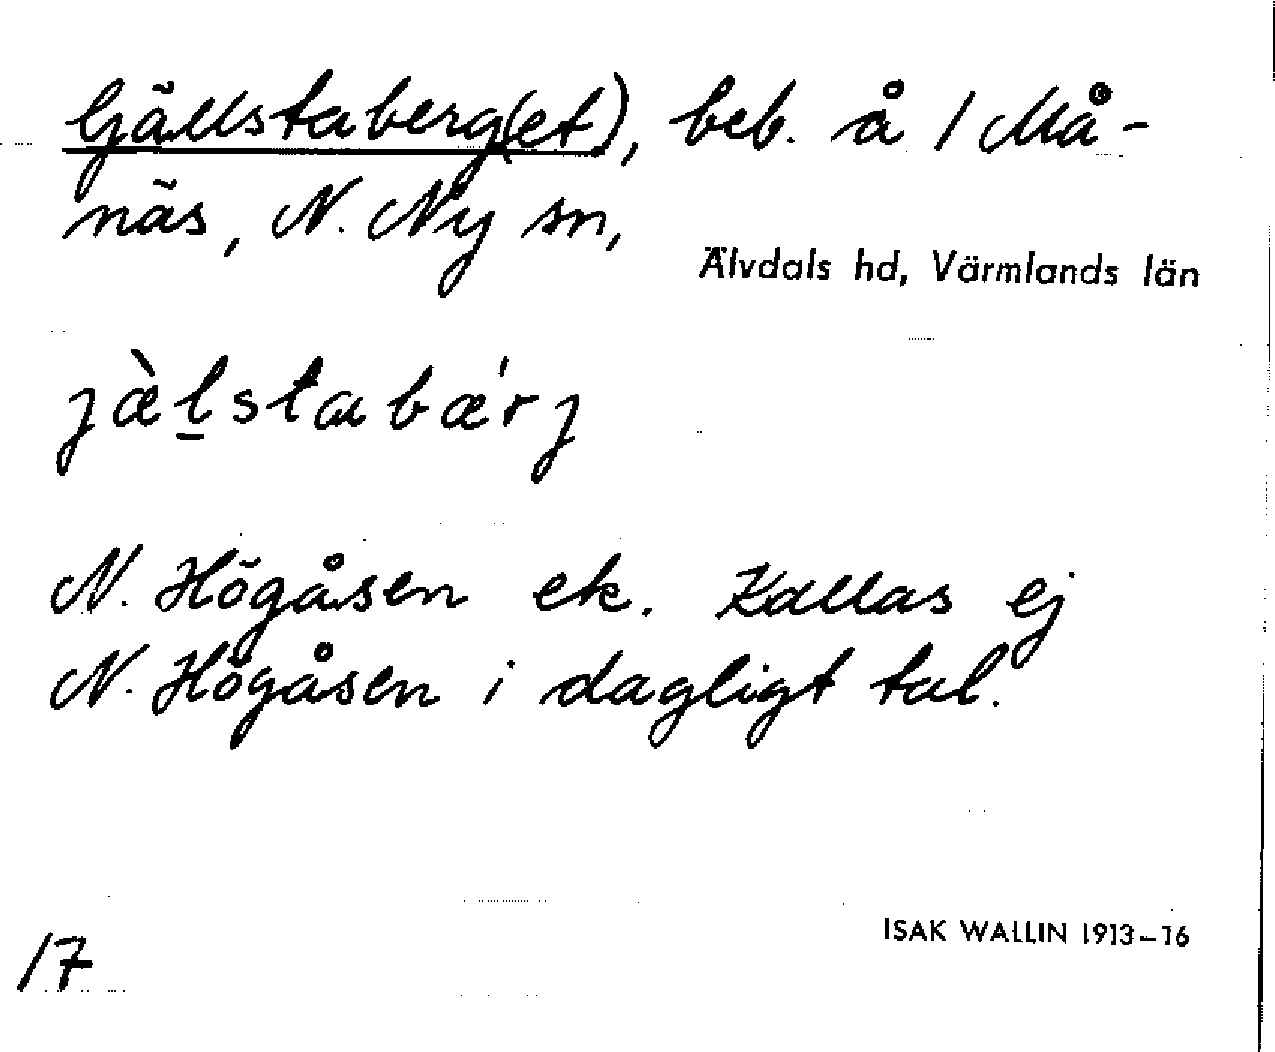 Gjällstaberg(et), beb. å 1 Må-
näs, N. Ny sn,
Älvdals hd, Värmlands län
jæ̀l̠stabæ´rj
N. Högåsen ek. Kallas ej
N. Högåsen i dagligt tal.
17
ISAK WALLIN 1913–16